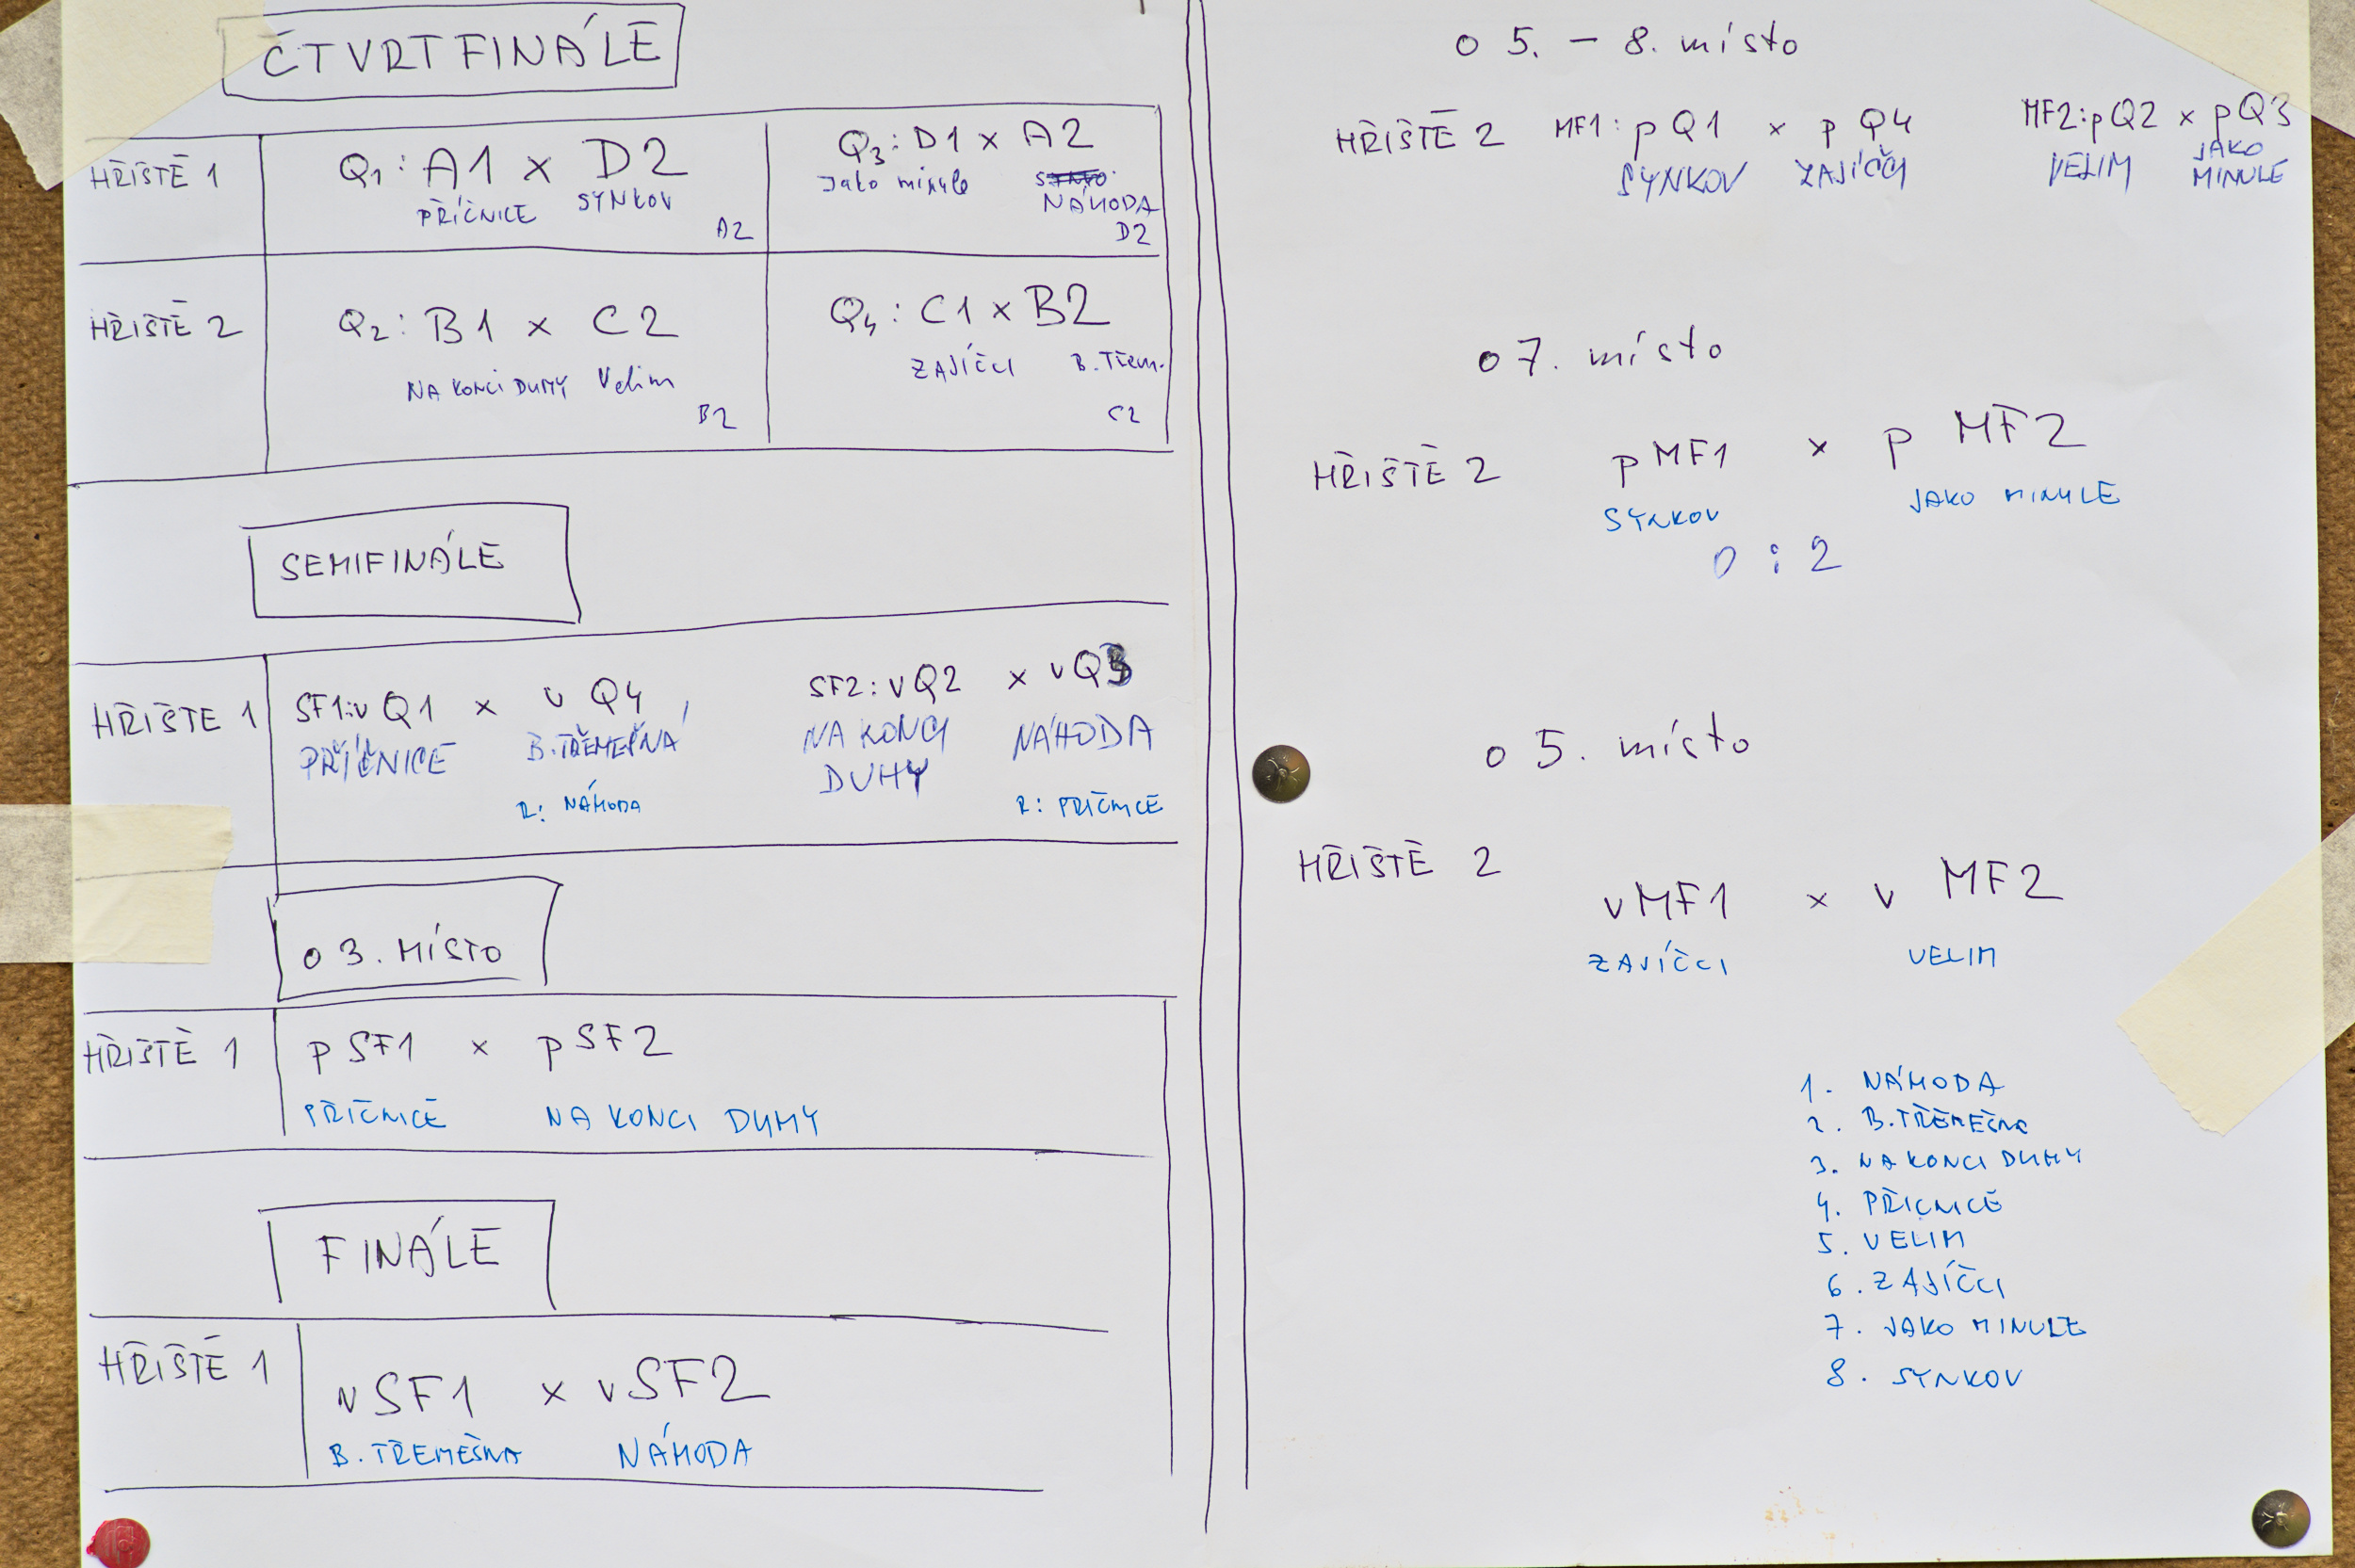 ČTVRTFINÁLE
HŘIŠTĚ 1
Q1: A1 x D2
PŘÍČNICE SYNKOV
A2
Q3: D1 x A2
Jako minule
NÁHODA
D2
HŘIŠTĚ 2
Q2: B1 x C2
NA KONCI DUHY Velim
B2
Q4: C1 x B2
ZAJÍČCI B. Třem.
C2
SEMIFINÁLE
HŘIŠTE 1
SF1: vQ1 x vQ4
PŘÍČNICE B. TŘEMEŠNÁ
R: NÁHODA
SF2: vQ2 x vQ3
NA KONCI NÁHODA
DUHY
R: PŘÍČNICE
o 3. MÍSTO
HŘIŠTĚ 1
pSF1 x pSF2
PŘÍČNICE NA KONCI DUHY
FINÁLE
HŘIŠTĚ 1
vSF1 x vSF2
B. TŘEMEŠNA NÁHODA
o 5. – 8. místo
HŘIŠTĚ 2 MF1: pQ1 x pQ4 MF2: pQ2 x pQ3
SYNKOV ZAJÍČCI VELIM JAKO
MINULE
o 7. místo
HŘIŠTĚ 2 pMF1 x pMF2
SYNKOV JAKO MINULE
0 : 2
o 5. místo
HŘIŠTĚ 2
vMF1 x vMF2
ZAJÍČCI VELIM
1. NÁHODA
2. B. TŘEMEŠNA
3. NA KONCI DUHY
4. PŘÍČNICE
5. VELIM
6. ZAJÍČCI
7. JAKO MINULE
8. SYNKOV